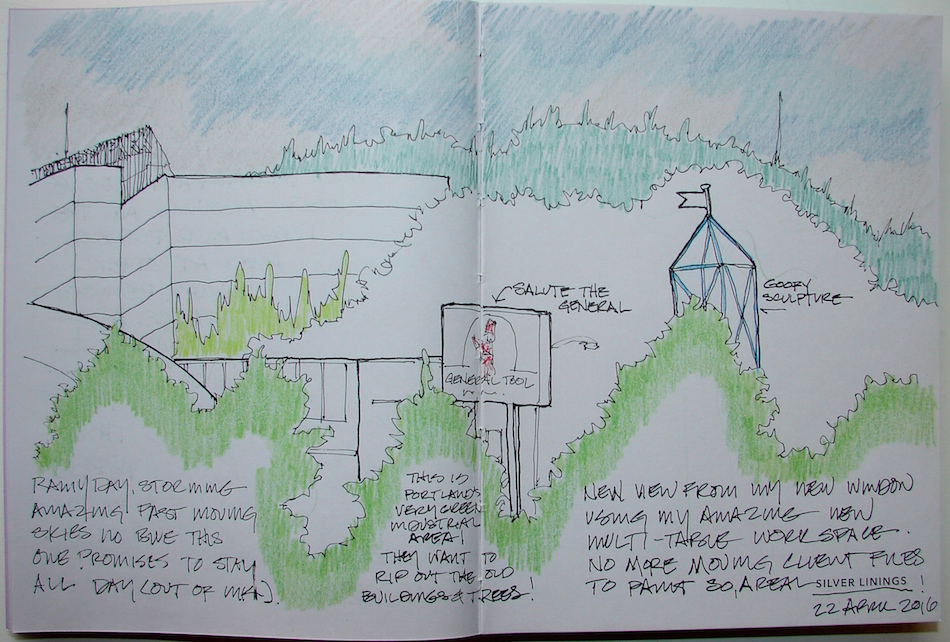 SALUTE THE
GENERAL
GOOFY
SCULPTURE
GENERAL TOOL
RAINY DAY. STORMING
AMAZING! FAST MOVING
SKIES NO BLUE THIS
ONE PROMISES TO STAY
ALL DAY (OUT OF MAY).
THIS IS
PORTLAND'S
VERY GREEN
INDUSTRIAL
AREA!
THEY WANT TO
RIP OUT THE OLD
BUILDINGS & TREES!
NEW VIEW FROM MY NEW WINDOW
USING MY AMAZING NEW
MULTI-TABLE WORK SPACE.
NO MORE MOVING CLIENT FILES
TO PAINT SO, A REAL SILVER LININGS!
22 APRIL 2016